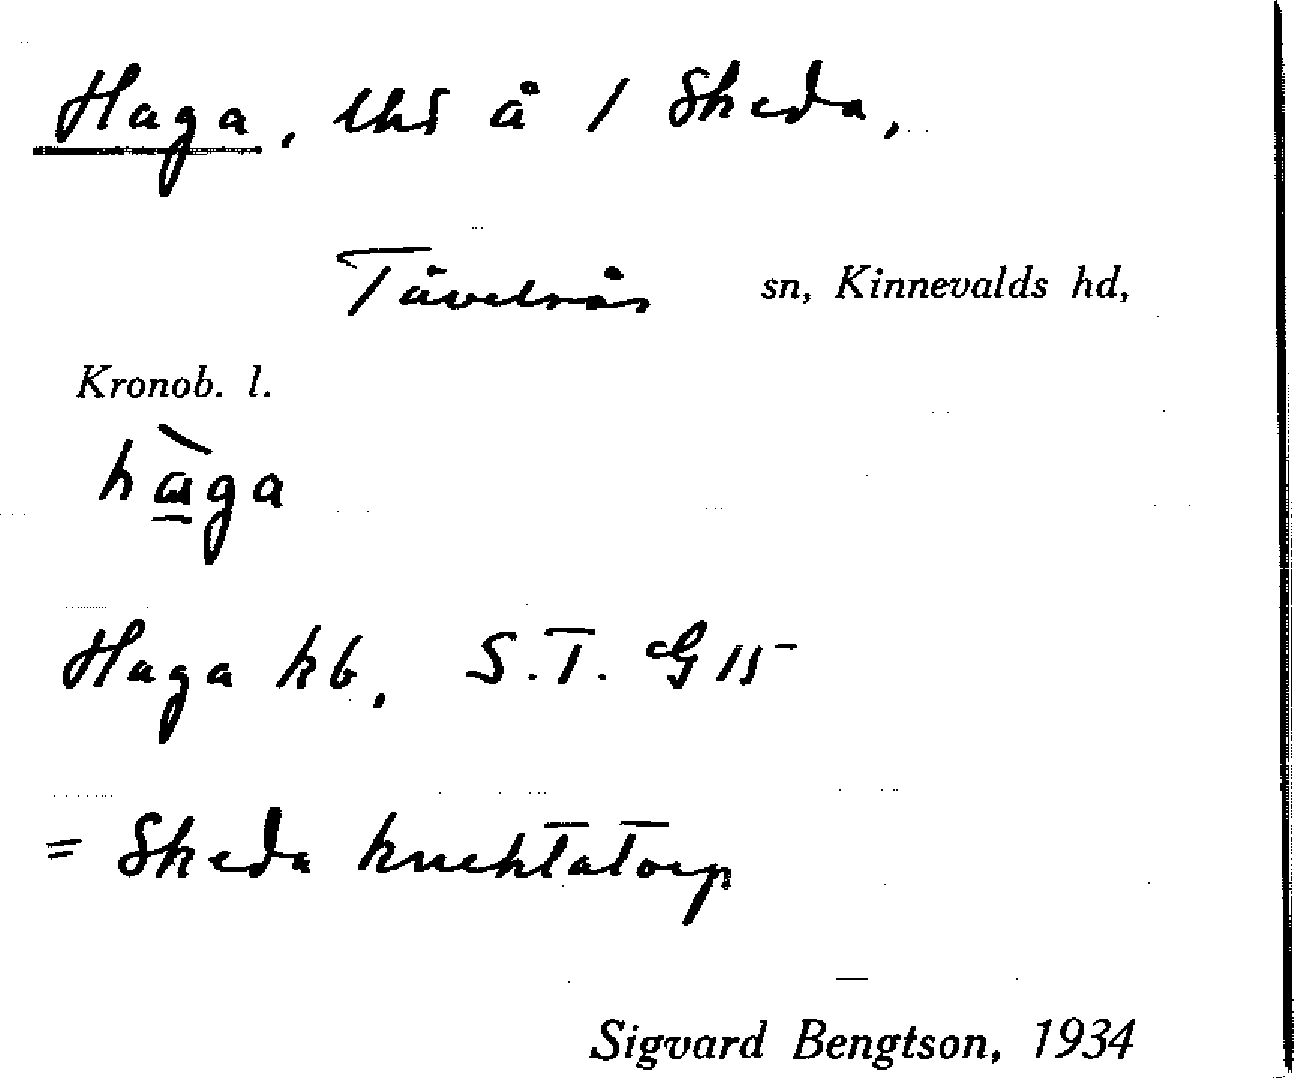 Haga, lht å / Skeda,
Tävelsås sn, Kinnevalds hd,
Kronob. l.
hàga
Haga kb, S.T. G 15
= Skeda knektatorp
Sigvard Bengtson, 1934